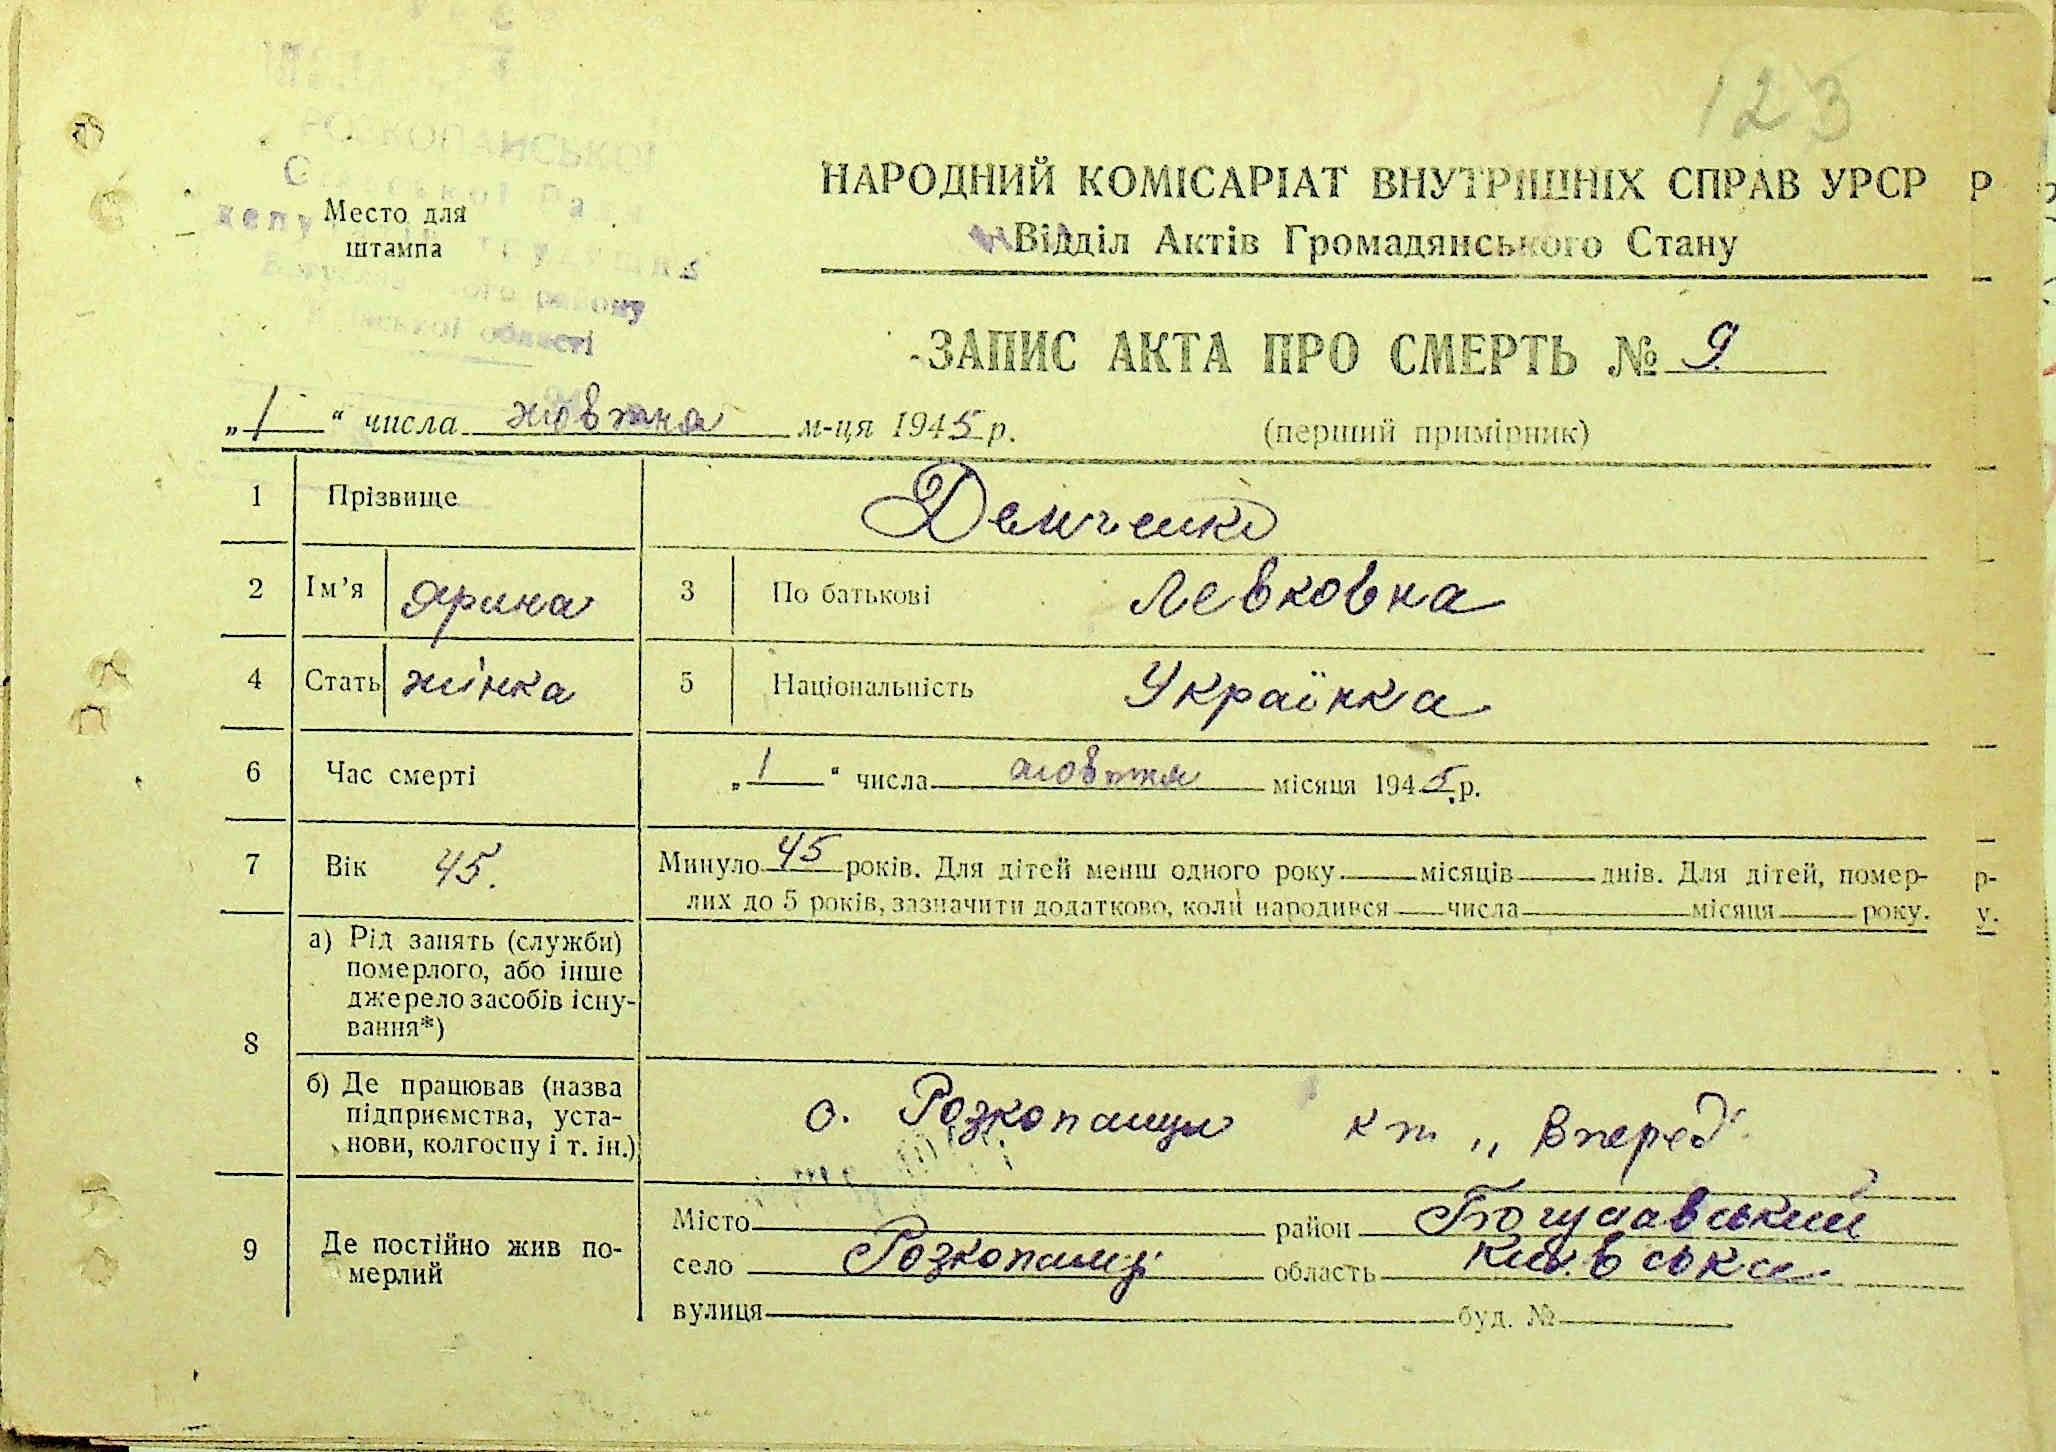 123
РОЗКОПАНСЬКОЇ
Сільської Ради
депутатів трудящих
Богуславського району
Київської області
Место для
штампа
НАРОДНИЙ КОМІСАРІАТ ВНУТРІШНІХ СПРАВ УРСР
Відділ Актів Громадянського Стану
ЗАПИС АКТА ПРО СМЕРТЬ № 9
„1“ числа жовтня м-ця 1945 р. (перший примірник)
1 Прізвище Демченко
2 Ім’я Ярина 3 По батькові Левковна
4 Стать жінка 5 Національність Українка
6 Час смерті „1“ числа жовтня місяця 1945 р.
7 Вік 45. Минуло 45 років. Для дітей менш одного року місяців днів. Для дітей, помер-
лих до 5 років, зазначити додатково, коли народився числа місяця року.
8 а) Рід занять (служби)
померлого, або інше
джерело засобів існу-
вання*)
б) Де працював (назва
підприємства, уста-
нови, колгоспу і т. ін.)
с. Розкопанці к т. „ Вперед"
9 Де постійно жив по-
мерлий
Місто район Богуславський
село Розкопанці область Київська
вулиця буд. №